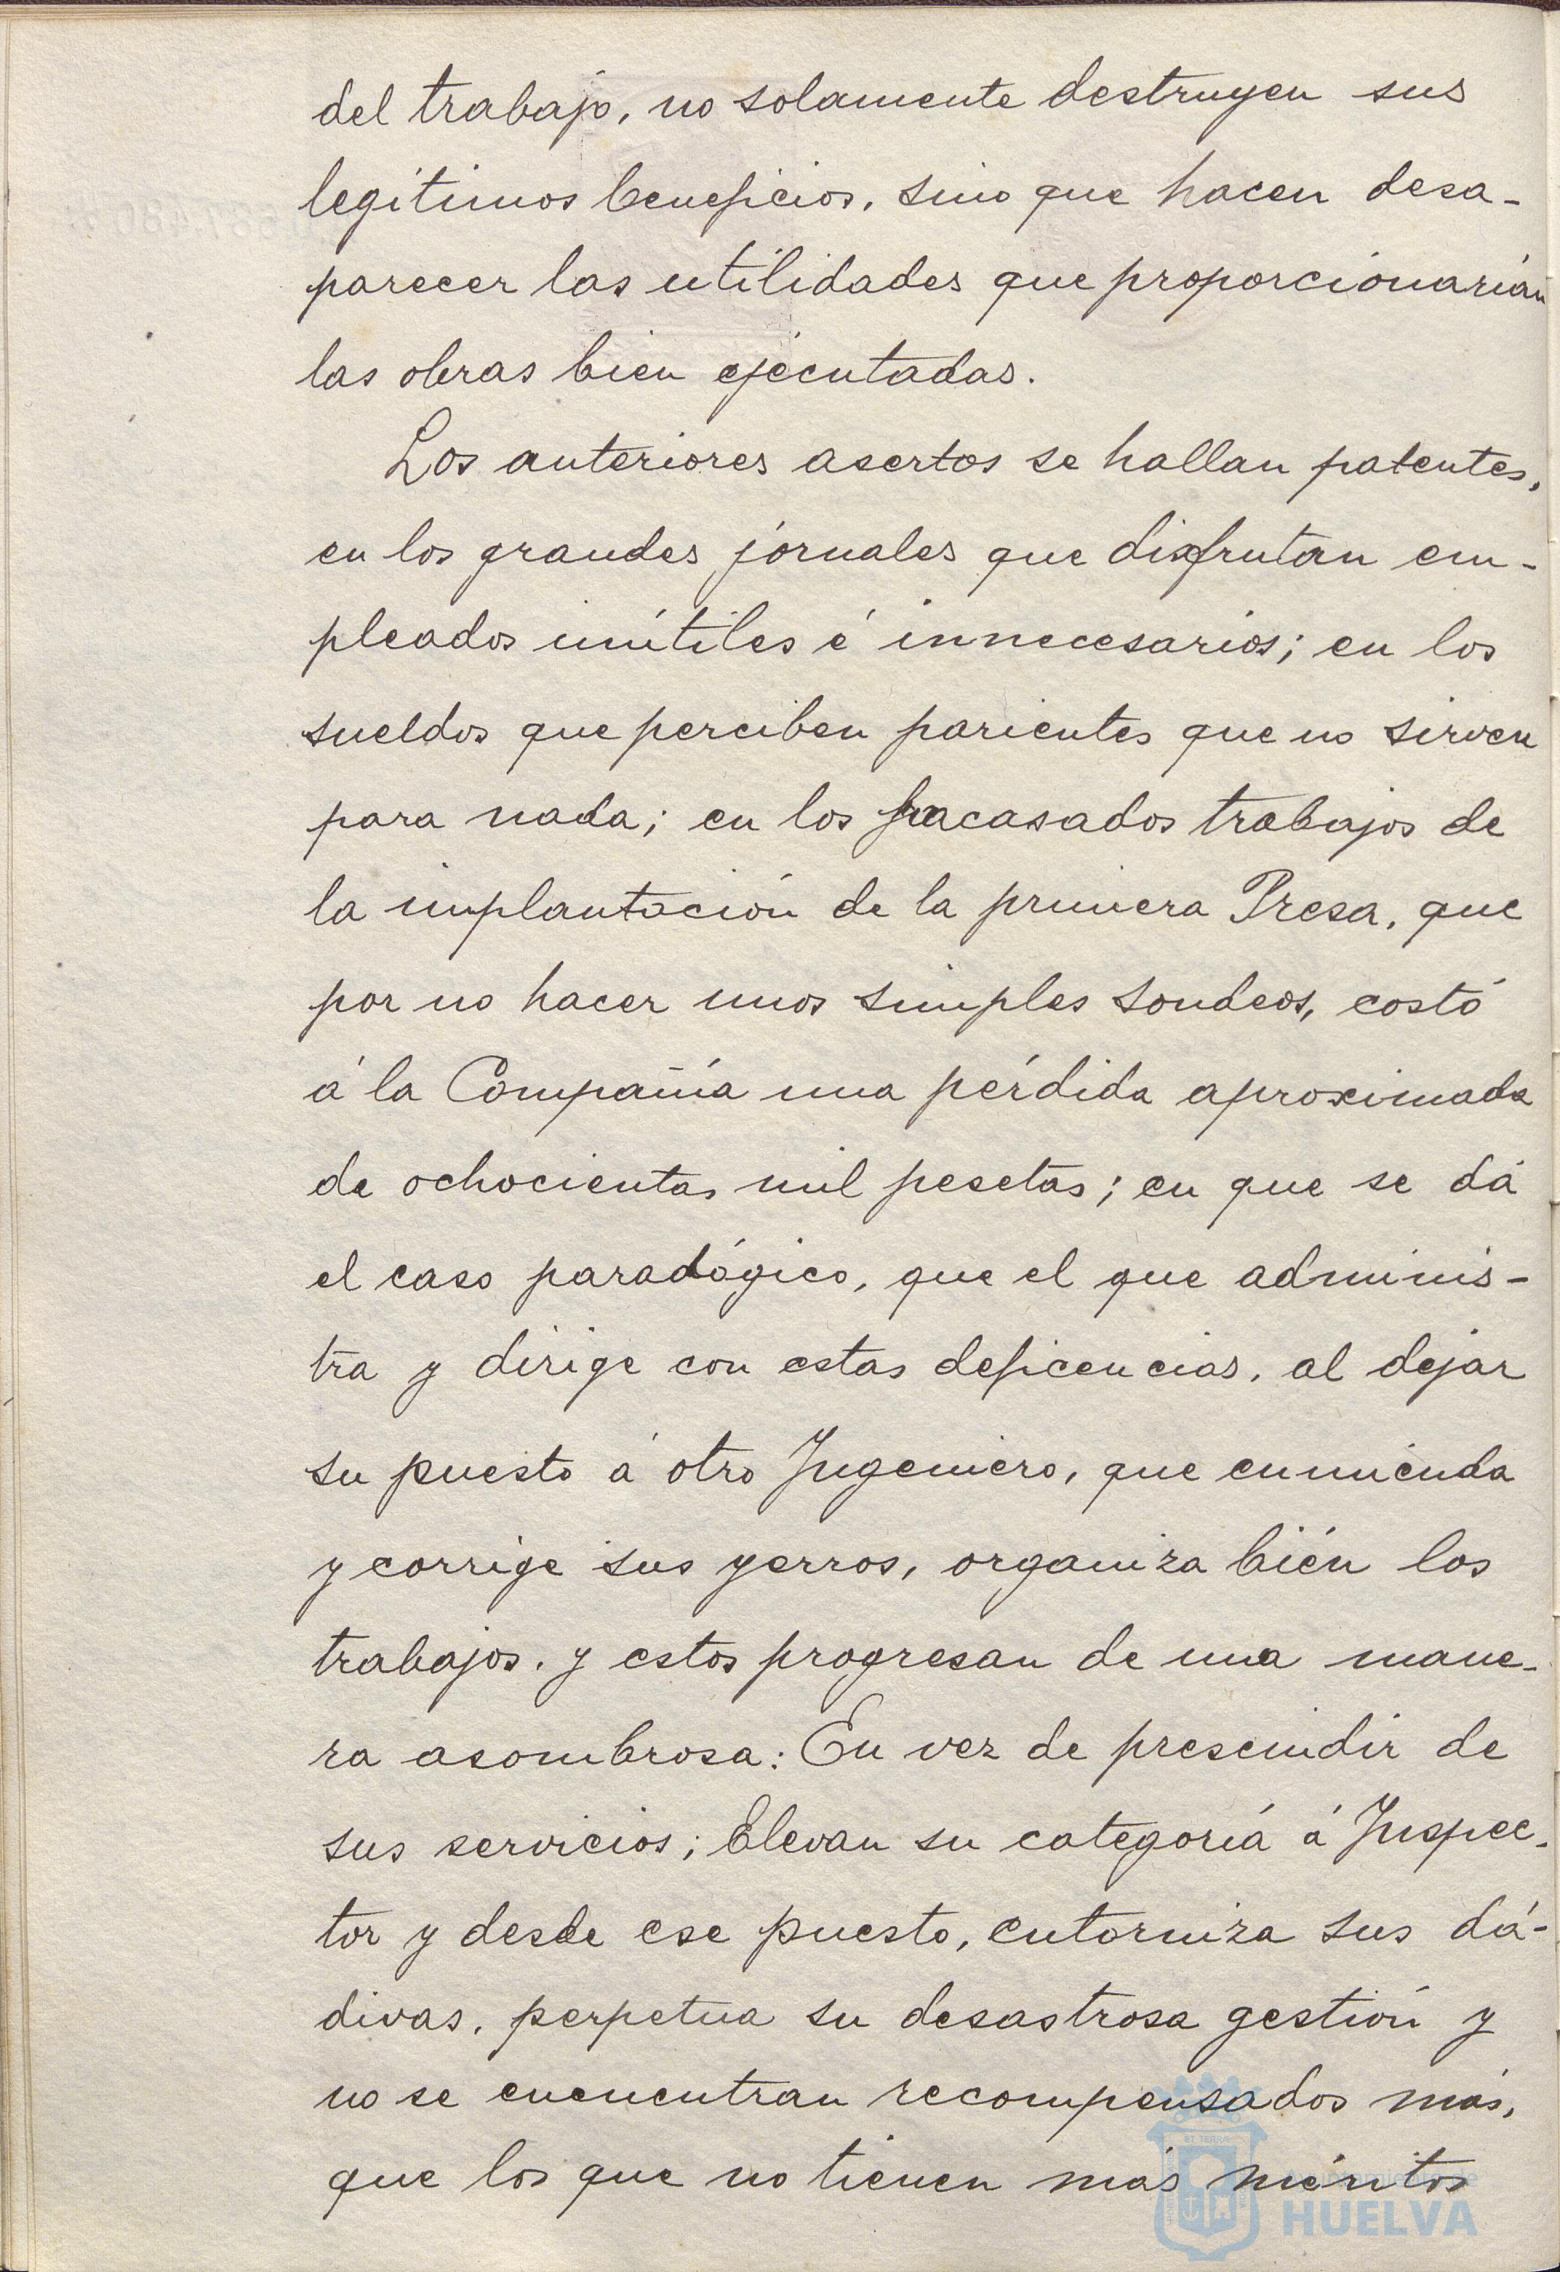 del trabajo, no solamente destruyen sus
legítimos beneficios, sino que hacen desa-
parecer las utilidades que proporcionarían
las obras bien ejecutadas.
Los anteriores asertos se hallan patentes,
en los grandes jornales que disfrutan em-
pleados inútiles é innecesarios; en los
sueldos que perciben parientes que no sirven
para nada; en los fracasados trabajos de
la implantación de la primera Presa, que
por no hacer unos simples sondeos, costó
á la Compañía una pérdida aproximada
de ochocientas mil pesetas; en que se dá
el caso paradógico, que el que adminis-
tra y dirige con estas deficencias, al dejar
su puesto á otro Ingeniero, que enmienda
y corrige sus yerros, organiza bién los
trabajos, y estos progresan de una mane-
ra asombrosa: En vez de prescindir de
sus servicios; Elevan su categoría á Inspec-
tor y desde ese puesto, entorniza sus dá-
divas, perpetua su desastrosa gestión y
no se encuentran recompensados más,
que los que no tienen más méritos
ET TERRA
Ayuntamiento de
HUELVA